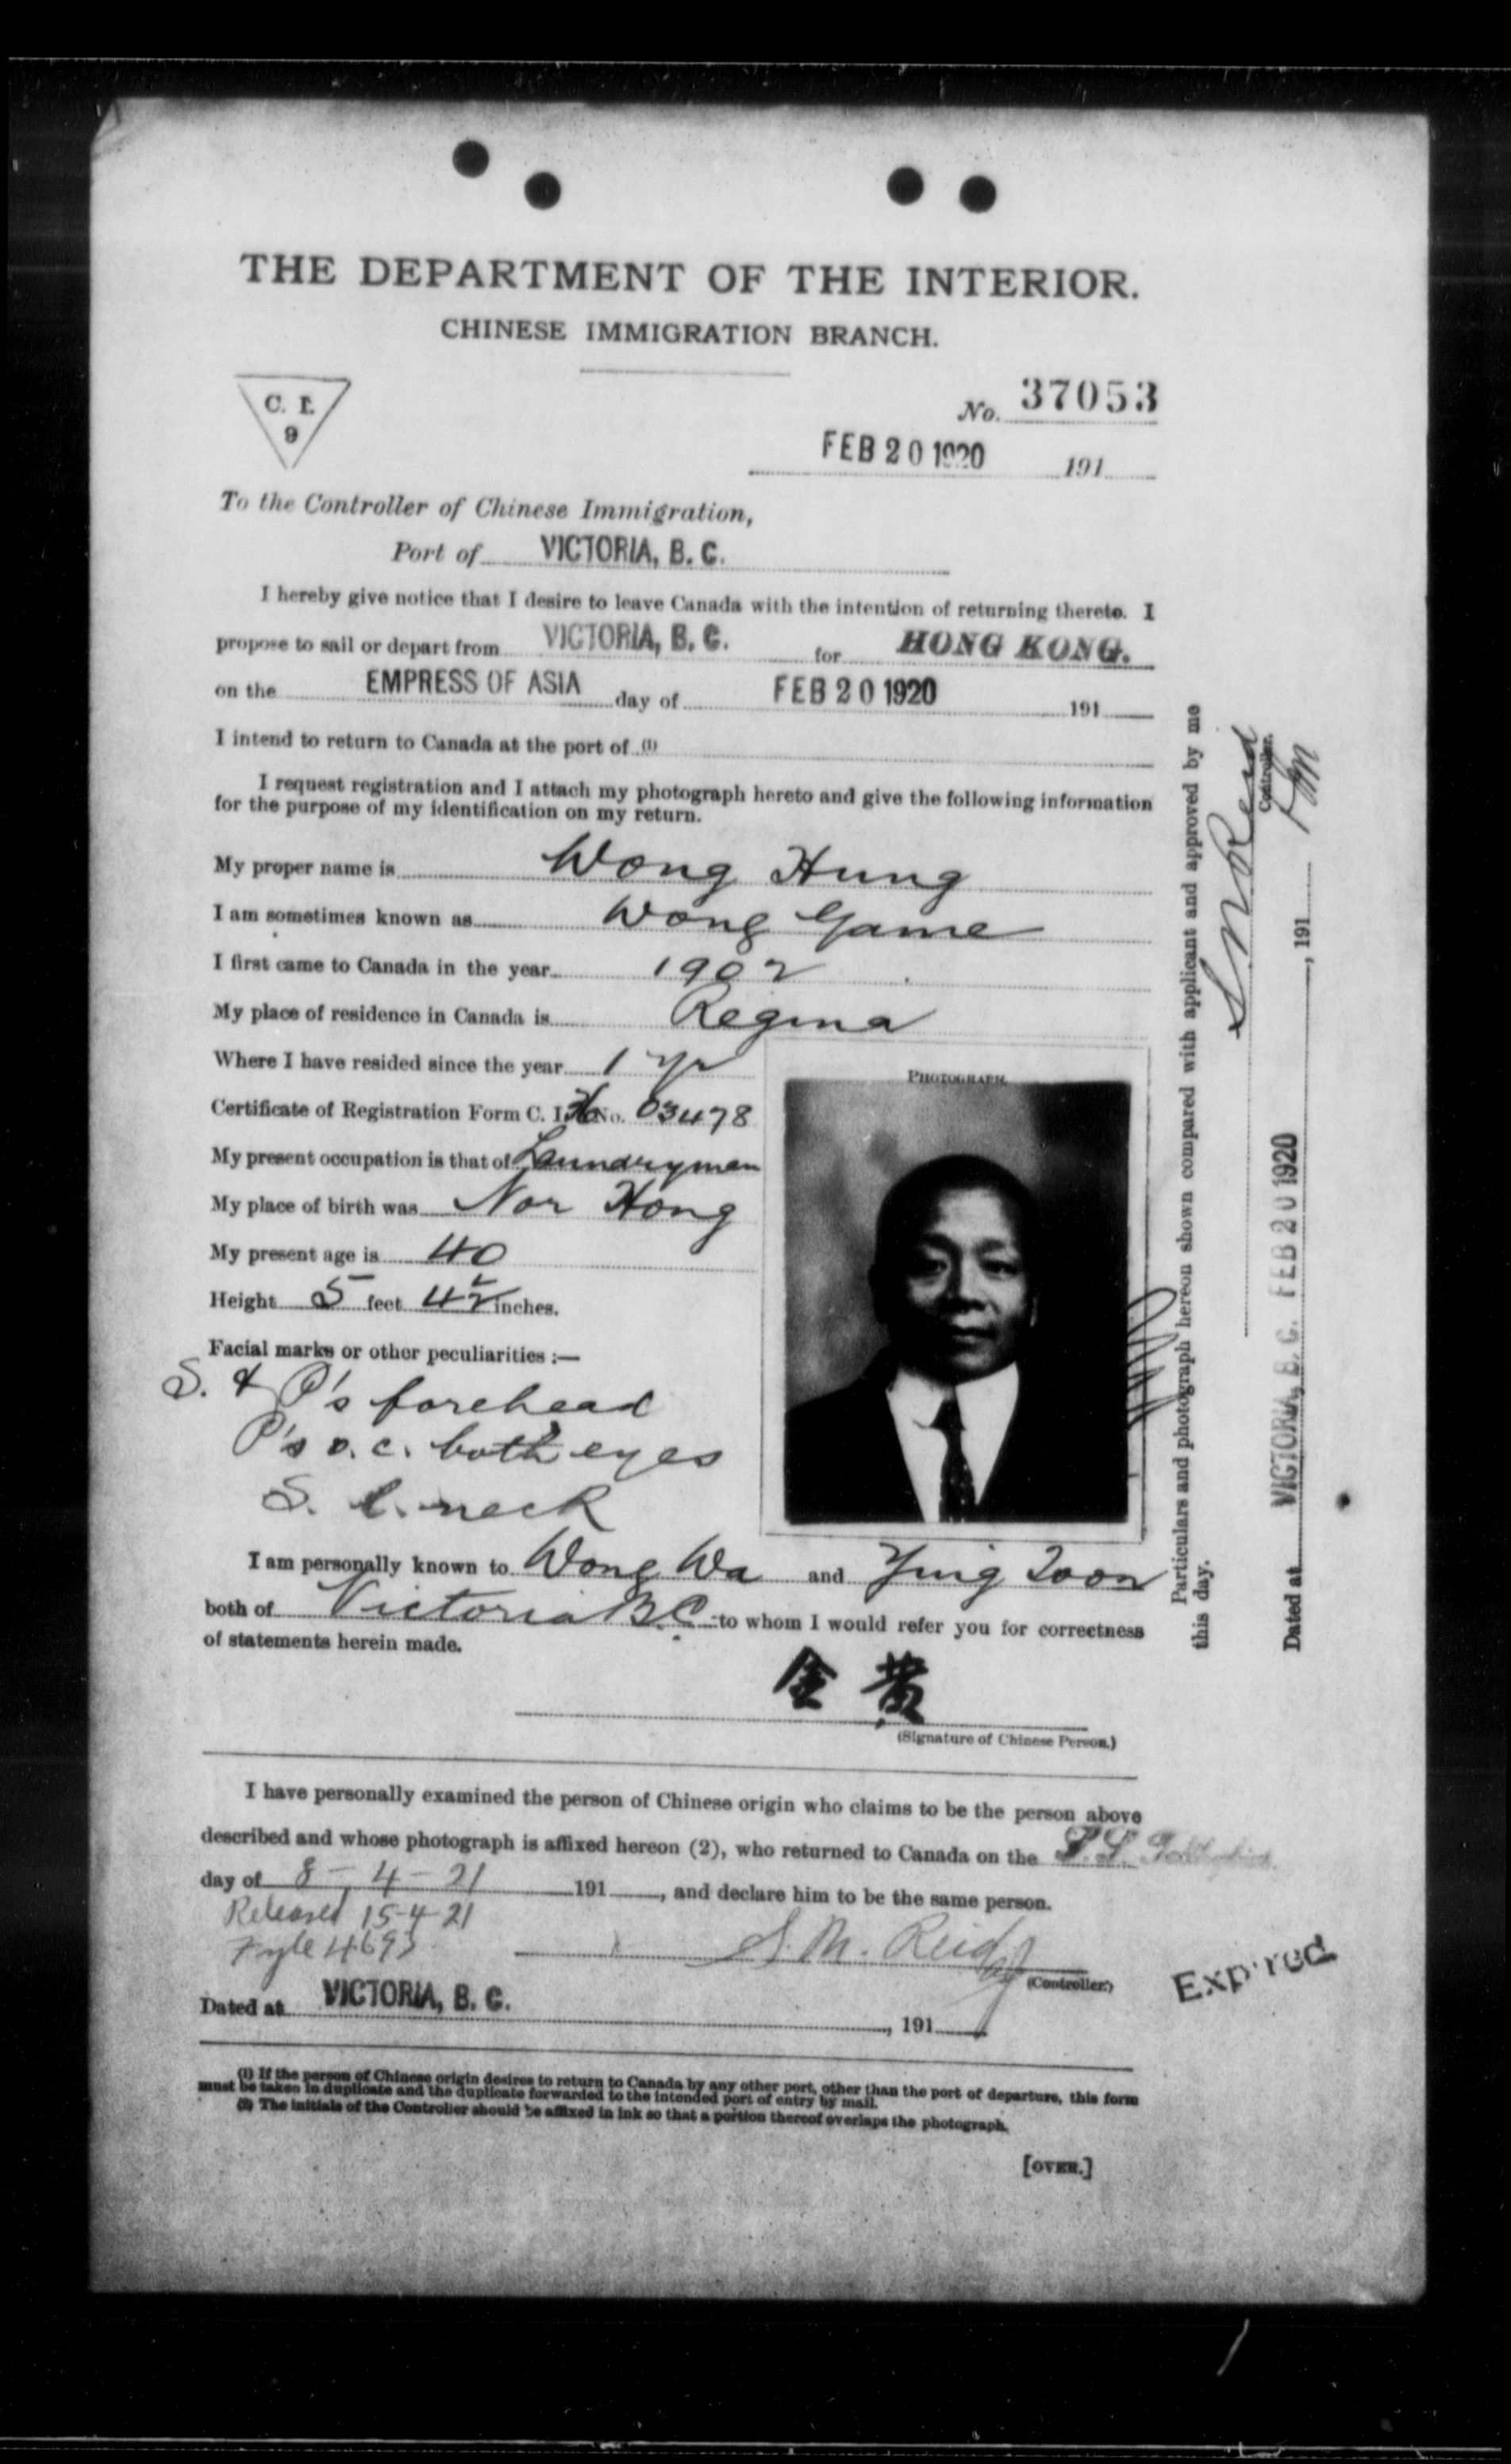 THE DEPARTMENT OF THE INTERIOR.
CHINESE IMMIGRATION BRANCH.
C. I.
9
No. 37053
FEB 20 1920 191
To the Controller of Chinese Immigration,
Port of VICTORIA, B. C.
I hereby give notice that I desire to leave Canada with the intention of returning thereto. I
propose to sail or depart from VICTORIA, B. C. for HONG KONG.
on the EMPRESS OF ASIA day of FEB 20 1920 191
I intend to return to Canada at the port of (1)
I request registration and I attach my photograph hereto and give the following information
for the purpose of my identification on my return.
My proper name is Wong Hung
I am sometimes known as Wong Game
I first came to Canada in the year 1902
My place of residence in Canada is Regina
Where I have resided since the year 1 yr
Certificate of Registration Form C. I. No. 03478
My present occupation is that of Laundryman
My place of birth was Nor Hong
My present age is 40
Height 5 feet 4½ inches.
Facial marks or other peculiarities :—
S. & P's forehead
P's o. c. both eyes
S. l. neck
PHOTOGRAPH.
I am personally known to Wong Wa and Ying Toon
both of Victoria B.C. to whom I would refer you for correctness
of statements herein made.
金 黄
(Signature of Chinese Person.)
I have personally examined the person of Chinese origin who claims to be the person above
described and whose photograph is affixed hereon (2), who returned to Canada on the
day of 8-4-21 191 , and declare him to be the same person.
Released 15-4-21
Fyle 4693
S. M. Reid
(Controller.)
Dated at VICTORIA, B. C. , 191
Expired
(1) If the person of Chinese origin desires to return to Canada by any other port, other than the port of departure, this form
must be taken in duplicate and the duplicate forwarded to the intended port of entry by mail.
(2) The initials of the Controller should be affixed in ink so that a portion thereof overlaps the photograph.
[OVER.]
Particulars and photograph hereon shown compared with applicant and approved by me
this day.
S M Reid
Controller.
Dated at VICTORIA, B. C. FEB 20 1920 , 191